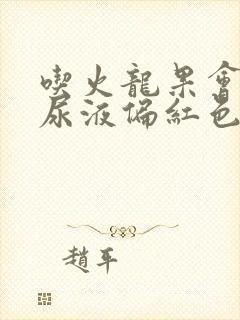 喫火龍果會
尿液偏紅色
趙平